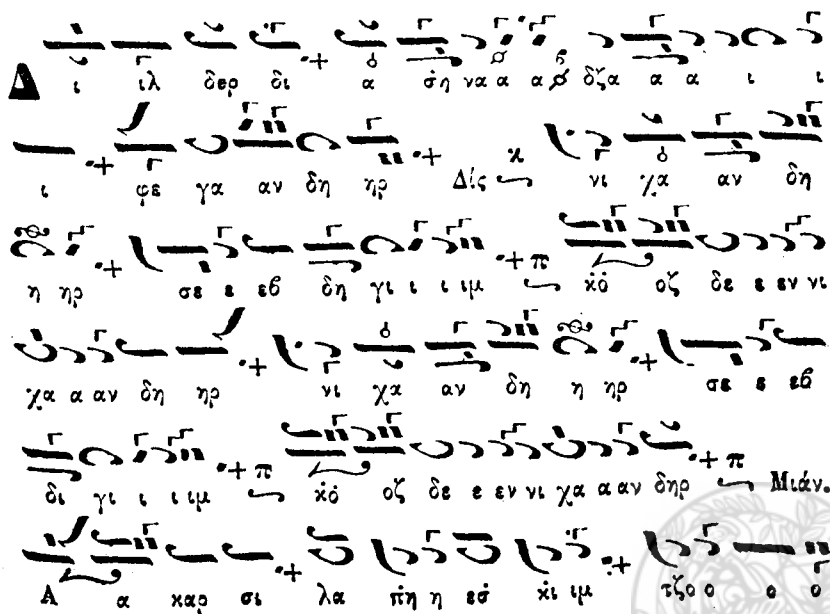 Δ ι ιλ δερ δι α σ̇η να α α δζα α α ι ι
ι φε γα αν δη ηρ Δίς ϰ νι χα αν δη
η ηρ σε ε εϐ δη γι ι ι ιμ π κ̇ό οζ δε ε εν νι
χα α αν δη ηρ νι χα αν δη η ηρ σε ε εϐ
δι γι ι ι ιμ π κ̇ό οζ δε ε εν νι χα α αν δηρ π Μιάν.
Α α καρ σι λα π̇η η εσ̇ κ̇ι ιμ τζο ο ο ο